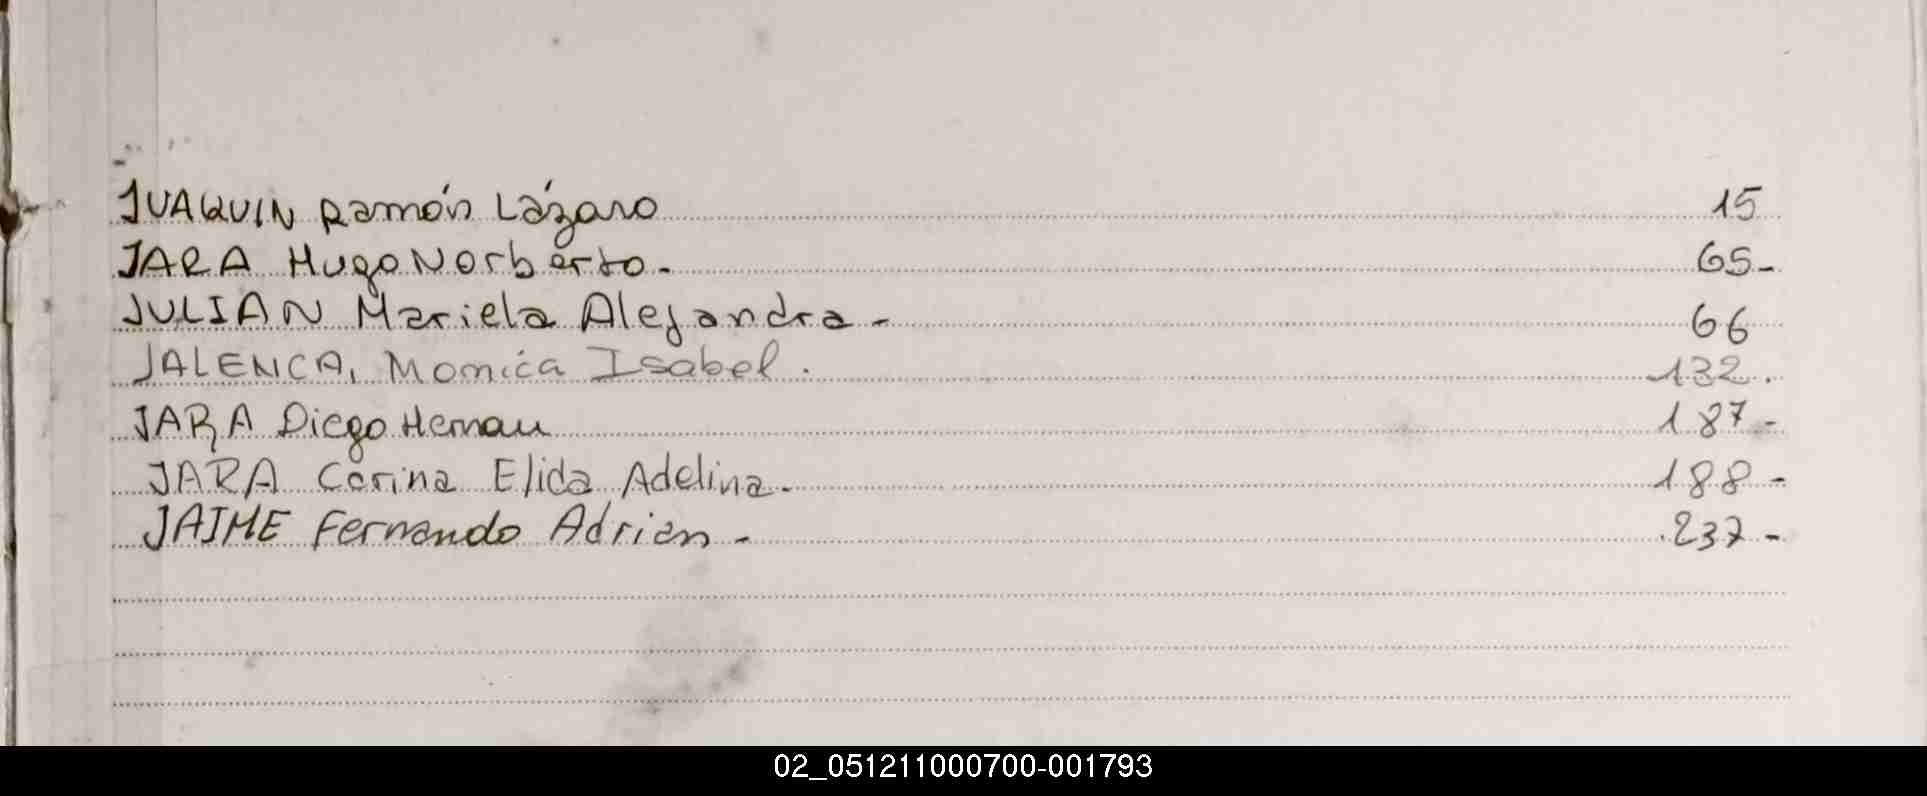 JUAQUIN Ramón Lázaro 15
JARA Hugo Norberto. 65-
JULIAN Mariela Alejandra - 66
JALENCA, Monica Isabel. 132.
JARA Diego Hernan 187-
JARA Carina Elida Adelina. 188-
JAIME Fernando Adrian - 237-
02_051211000700-001793